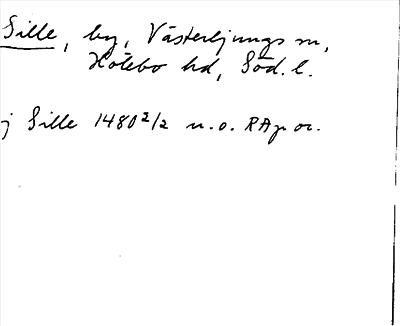 Sille, by, Västerljungs sn,
Hölebo hd, Söd. l.
j Sille 1480 2/2 u. o. RAp or.